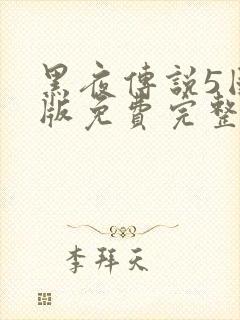 黑夜傳説5
版免費完整
李拜天